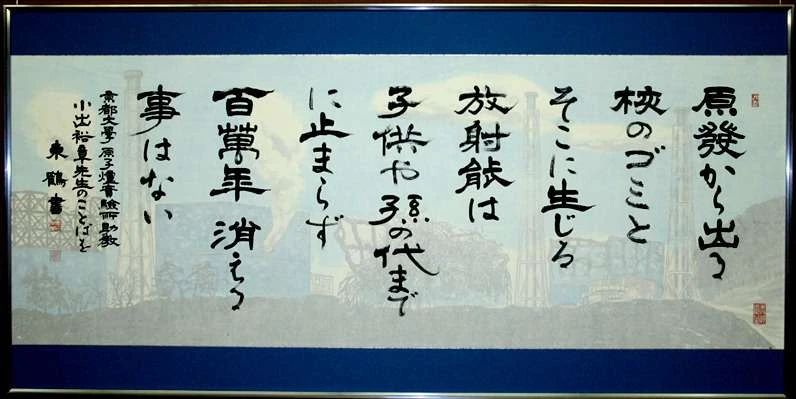 原發から出る
核のゴミと
そこに生じる
放射能は
子供や孫の代まで
に止まらず
百萬年消える
事はない
京都大學原子爐實驗所助教
小出裕章先生のことばを
東鶴書